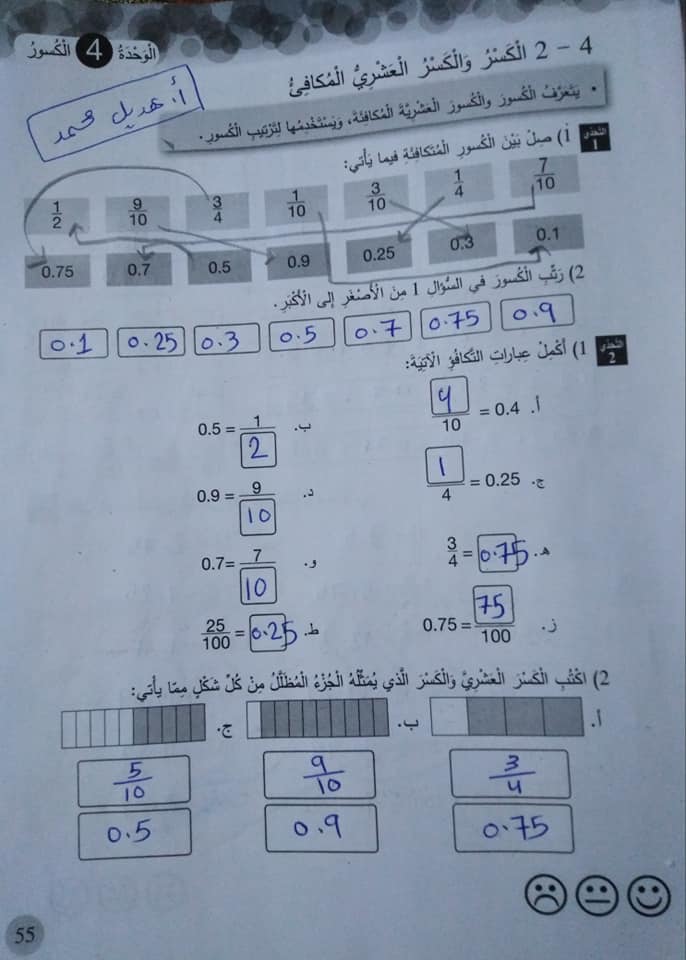 الْوَحْدَةُ 4 الْكُسورُ
4 – 2 الْكَسْرُ وَالْكَسْرُ الْعَشْرِيُّ الْمُكافِئُ
أ. هديل محمد
• يَتَعَرَّفُ الْكُسورَ والْكُسورَ الْعَشْرِيَّةَ الْمُكافِئَةَ، وَيَسْتَخْدِمُها لِتَرْتيبِ الْكُسورِ.
التَّحَدّي 1
أ) صِلْ بَيْنَ الْكُسورِ الْمُتَكافِئَةِ فيما يَأْتي:
7/10 1/4 3/10 1/10 3/4 9/10 1/2
0.1 0.3 0.25 0.9 0.5 0.7 0.75
2) رَتِّبِ الْكُسورَ في السُّؤالِ 1 مِنَ الْأَصْغَرِ إلى الْأَكْبَرِ.
0.1 0.25 0.3 0.5 0.7 0.75 0.9
التَّحَدّي 2
1) أَكْمِلْ عِباراتِ التَّكافُؤِ الْآتِيَةَ:
أ. 4/10 = 0.4
ب. 0.5 = 1/2
ج. 1/4 = 0.25
د. 0.9 = 9/10
هـ. 3/4 = 0.75
و. 0.7= 7/10
ز. 0.75 = 75/100
ط. 25/100 = 0.25
2) اكْتُبِ الْكَسْرَ الْعَشْرِيَّ وَالْكَسْرَ الَّذي يُمَثِّلُهُ الْجُزْءُ الْمُظَلَّلُ مِنْ كُلِّ شَكْلٍ مِمّا يَأْتي:
أ. ب. ج.
3/4 9/10 5/10
0.75 0.9 0.5
55